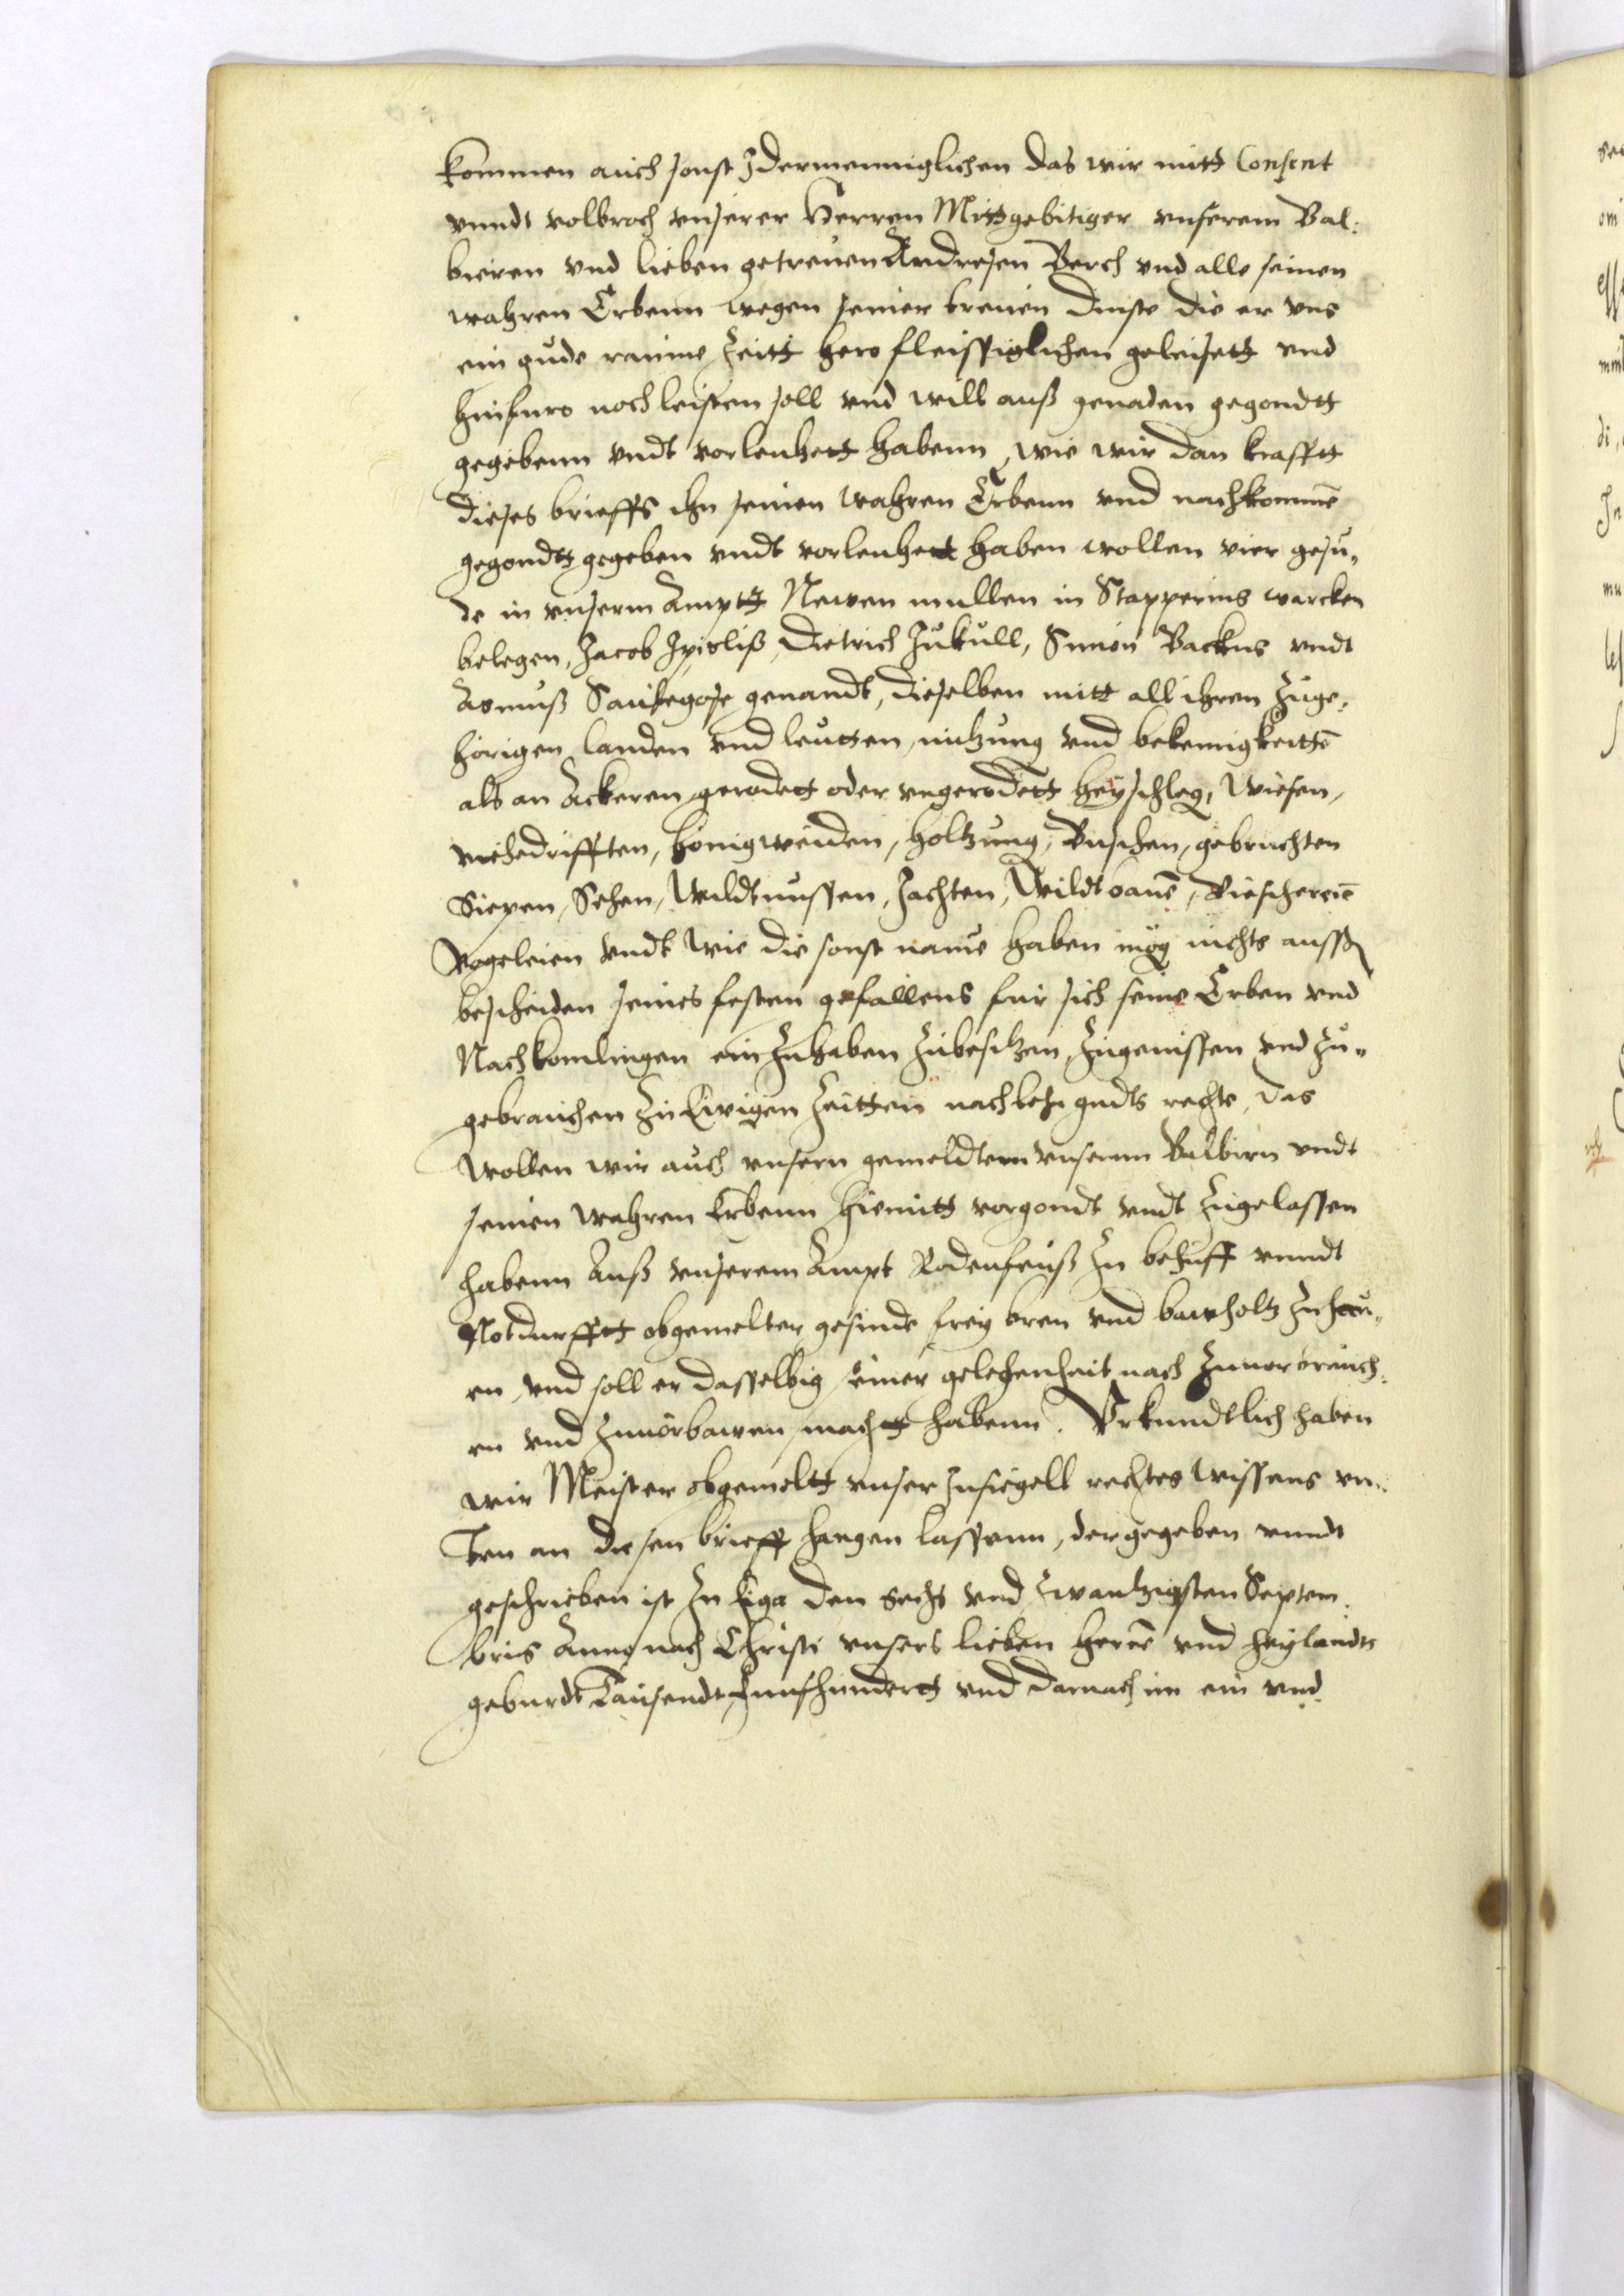 kommen auch sonst Idermenniglichen das wir mitt Consent
vnndt volbroch vnserer Herren Mittgebitiger vnserem Bal:
bieren vnd lieben getreuen Andresen Berch vnd alle seinen
wahren Erbenn wegen seiner treuen dinste die er vns
ein gude raume Zeitt hero fleissiglichen geleisett vnd
hinfuro noch leisten soll vnd will auß genaden gegondtt
gegebenn vndt vorlenhett habenn, wie wir dan krafftt
dieses brieffs ihn seinen wahren Erbenn vnd nachkomme
gegondtt gegeben vndt vorlenhett haben wollen vier gesu„
de in vnserm Amptt Newen mullen in Stapperins warcken
belegen, Jacob Dietrich Zukull, Simon Backus vndt
Asmuß Saukegose genandt, dieselben mitt all ihren Zuge,
hörigen landen vnd leutten, nutzung vnd bekemigkeitte
als an Äckeren gerodett oder vngerodett heyschleg, Wiesen,
viehedrifften, honigweiden, holtzung, Buschen, gebruchten
Siepen, Sehen, Wildtnussen, Jachten, Wildt Vischereie
Vogeleien vndt wie die sonst name haben mög nichts auss
bescheiden seines festen gefallens fur sich seine Erben vnd
Nachkomlingen einzuhaben Zubesitzen, Zugenissen vnd Zu„
gebrauchen Zu Ewigen Zeitten nach lehn gudts rechte, das
Wollen wir auch vnsern gemeldtem vnserem Balbirn vndt
seinen wahren Erbenn hiemitt vorgondt vndt Zugelassen
habenn Auß vnserem Ampt Rodenpeuß Zu behuff vnndt
Notdurfftt obgemelter gesinde frey bren vnd bawholtz Zuhau„
en, vnd soll er dasselbig seiner gelegenheit nach Zuuorbrauch:
en vnd Zuuorbawen, machtt habenn. Vrkundtlich haben
wir Meister obgemeltt vnser Insiegell rechtes Wissens vn:
ten an diesen brieff hangen lassenn, der gegeben vnndt
geschrieben ist Zu Riga den sechs vnd Zwantzigsten Septem:
bris Anno nach Christi vnsers lieben heren vnd heylandts
geburdt Tausendt Funfhundertt vnd darnach im ein vnd